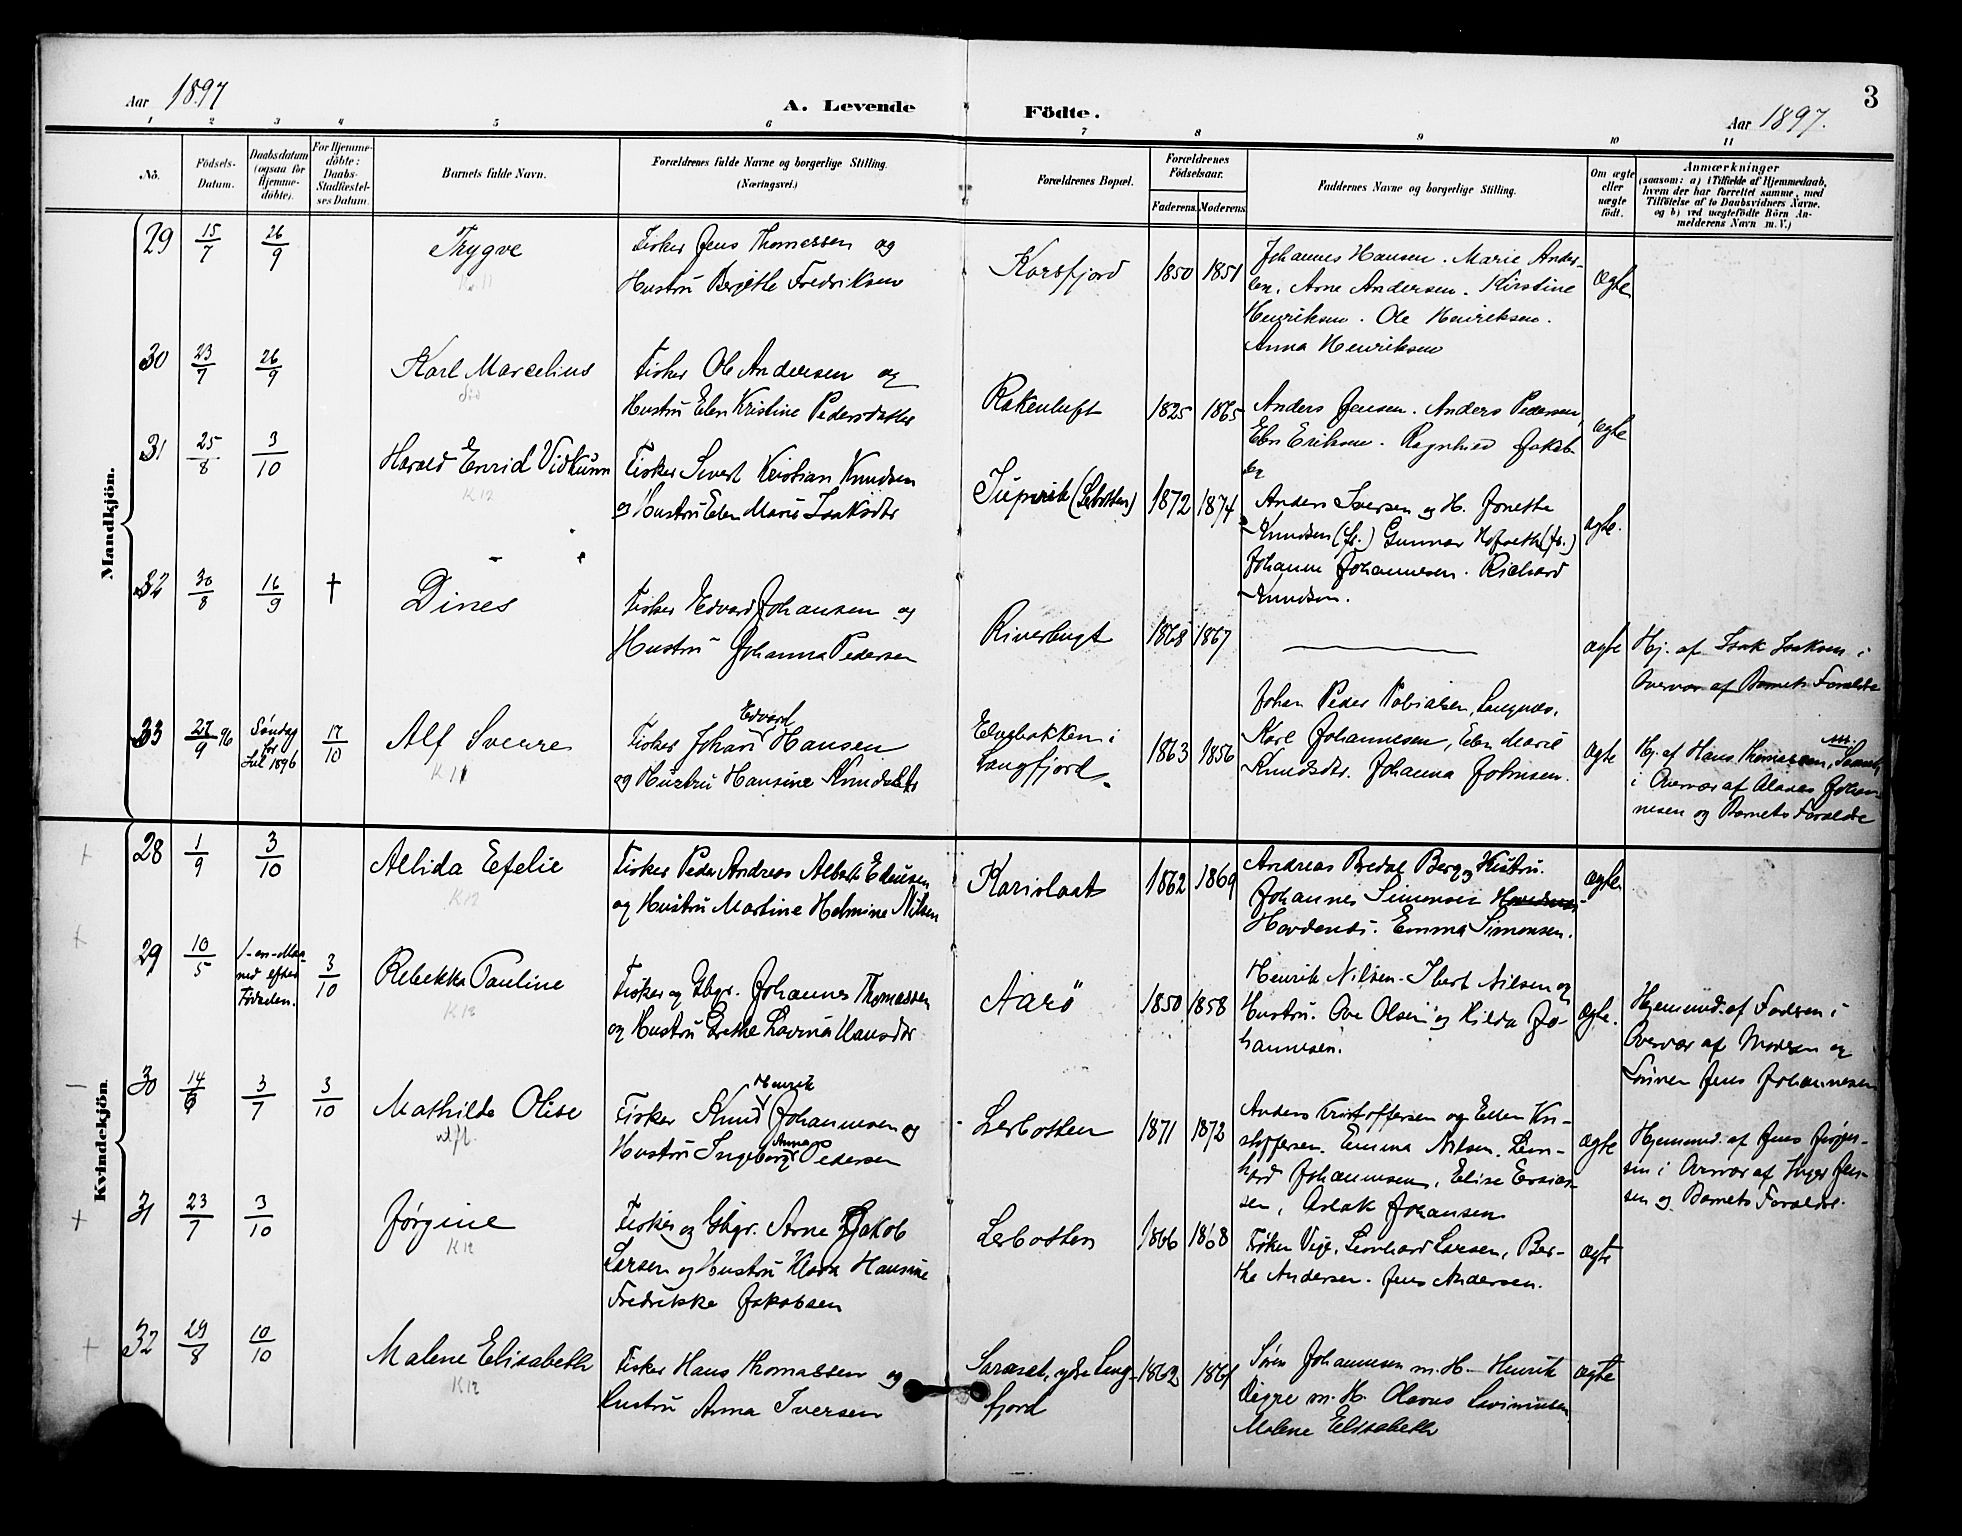 Aar 1897
A. Levende Födte.
Aar 1897.
3
1 2 3 4 5 6 7 8 9 10 11
No.
Födsels-Datum.
Daabsdatum (ogsaa for Hjemme-döbte).
For Hjemme-döbte: Daabs-Stadfæstel-ses Datum.
Barnets fulde Navn.
Forældrenes fulde Navne og borgerlige Stilling.
(Næringsvei.)
Forældrenes Bopæl.
Forældrenes Födselsaar.
Faderens. Moderens.
Faddernes Navne og borgerlige Stilling.
Om ægte eller uægte födt.
Anmærkninger
(saasom: a) i Tilfælde af Hjemmedaab,
hvem der har forrettet samme, med
Tilföielse af to Daabsvidners Navne.
og b) ved uægtefödte Börn An-
melderens Navn m. V.)
Mandkjön.
29 15/7 26/9 Trygve
Fisker Jens Thomassen og
Hustru Berjethe Fredriksen
Korsfjord 1850 1851
Johannes Hansen. Marie Ander-
sen. Arne Andersen. Kirstine
Henriksen. Ole Henriksen.
Anna Henriksen
Ægte
30 23/7 26/9 Karl Marcelius
Fisker Ole Andersen og
Hustru Elen Kristine Pedersdatter
1825 1865
Anders Jensen. Anders Pedersen,
Elen Eriksen. Ragnhild Jakob-
sen
ægte
31 25/8 3/10 Harald Enrid Vidkunn
K12
Fisker Sivert Kristian Knudsen
og Hustru Elen Marie Isaksdtr
(Lerbotten) 1872 1874
Anders Iversen og H. Jonetta
Knudsen (fr.) Gunnar (fr.)
Johanne Johannesen. Richard
Knudsen.
ægte.
32 30/8 16/9 † Dines
Fisker Edvard Johansen og
Hustru Johanna Pedersen
Riverbugt 1868 1867
ægte
Hj. af Isak Isaksen i
Overvær af Barnets Forældre
33 27/9 96 Søndag før Jul 1896 17/10 Alf Sverre
K11
Fisker Johan Edvard Hansen
og Hustru Hansine Knudsdtr
Elvebakken i
Langfjord. 1863 1856
Johan Peder Tobiasen, Langnes.
Karl Johannesen, Elen Marie
Knudsdtr. Johanna Johnsen.
ægte
Hj. af Hans Thomassen,
i Overvær af Olaves Johan-
nesen og Barnets Forældre
Kvindekjön.
28 1/9 3/10 Albida Efelie
K12
Fisker Peder Andreas Albert Edensen
og Hustru Martine Helmine Nilsen
1862 1869
Andreas Bredal Berg og Hustru.
Johannes Simonsen
Emma Simonsen.
ægte
29 10/5 1-en-Maa-
ned efter
Fødselen.
3/10 Rebekka Pauline
K12
Fisker og Gbgr. Johannes Thomassen
og Hustru Grethe Lovina Hansdtr
Aarö 1850 1858
Henrik Nilsen. Ibert Nilsen og
Hustru. Ove Olsen og Hilda Jo-
hannesen.
ægte.
Hjemmed. af Faderen i
Overvær af Moderen og
Sönnen Jens Johannesen
30 14/6 3/7 3/10 Mathilde Olise
utfl.
Fisker Knud Henrik Johannesen og
Hustru Ingeborg Anna Pedersen
Lerbotten 1871 1872
Anders Kristoffersen og Ellen Kri-
stoffersen. Emma Nilsen. Leon-
hard Johannesen, Elise
Aslak Johansen
ægte
Hjemmed. af Jens Jörgen-
sen i Overvær af Inger Jen-
sen og Barnets Forældre.
31 23/7 3/10 Jørgine
K12
Fisker og Gbgr. Arne Jakob
Larsen og Hustru Klara Hansine
Fredrikke Jakobsen
Lerbotten 1866 1868
Fisker Vige, Leonhard Larsen, Ber-
the Andersen. Jens Andersen.
ægte
32 29/8 10/10 Malene Elisabeth
K12
Fisker Hans Thomassen og
Hustru Anna Iversen
ydre Lang-
fjord 1862 1861
Sören Johannesen m. H. Henrik
Digre m. H. Olavus
Malene Elisabeth
ægte